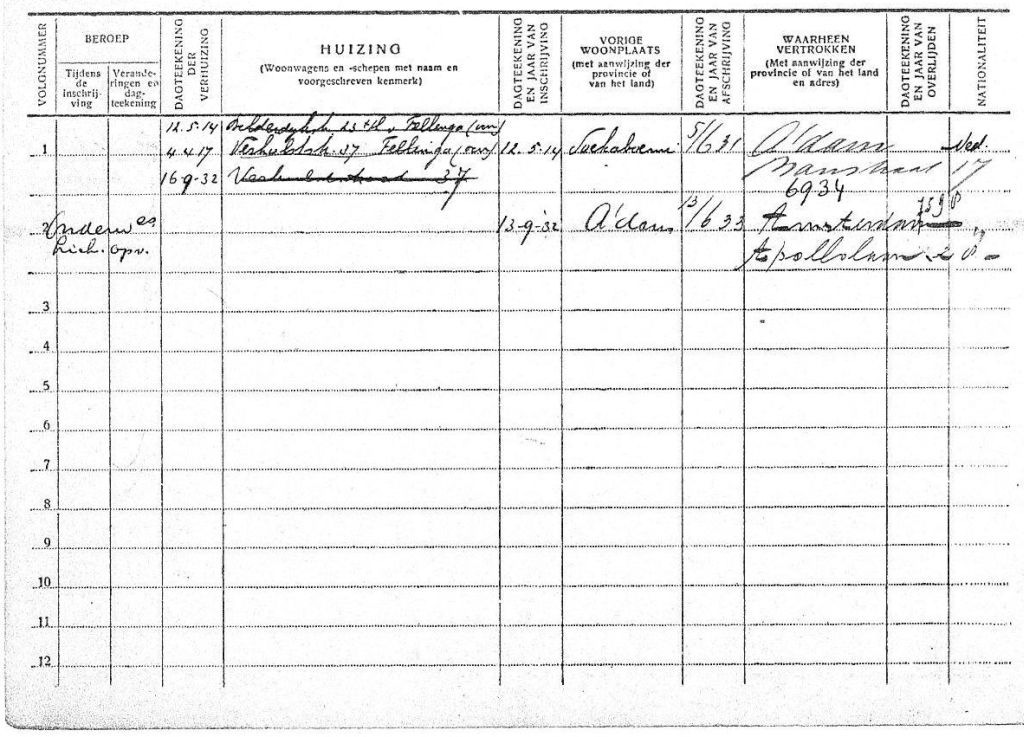 VOLGNUMMER
BEROEP
Tijdens de inschrijving
Veranderingen en dagteekening
DAGTEEKENING DER VERHUIZING
HUIZING
(Woonwagens en -schepen met naam en
voorgeschreven kenmerk)
DAGTEEKENING EN JAAR VAN INSCHRIJVING
VORIGE
WOONPLAATS
(met aanwijzing der
provincie of
van het land)
DAGTEEKENING EN JAAR VAN AFSCHRIJVING
WAARHEEN
VERTROKKEN
(Met aanwijzing der
provincie of van het land
en adres)
DAGTEEKENING EN JAAR VAN OVERLIJDEN
NATIONALITEIT
12.5.14 23 Fellinga
1 4.4.17 Verhulststr. 37 Fellinga 12.5.14 Soekaboemi 5/6 31 A'dam Ned.
16-9-32 37 17
6934
2 Onderw es 13-9-32 A'dam 13/6 33 Amsterdam
opv. Apollolaan 2
3
4
5
6
7
8
9
10
11
12